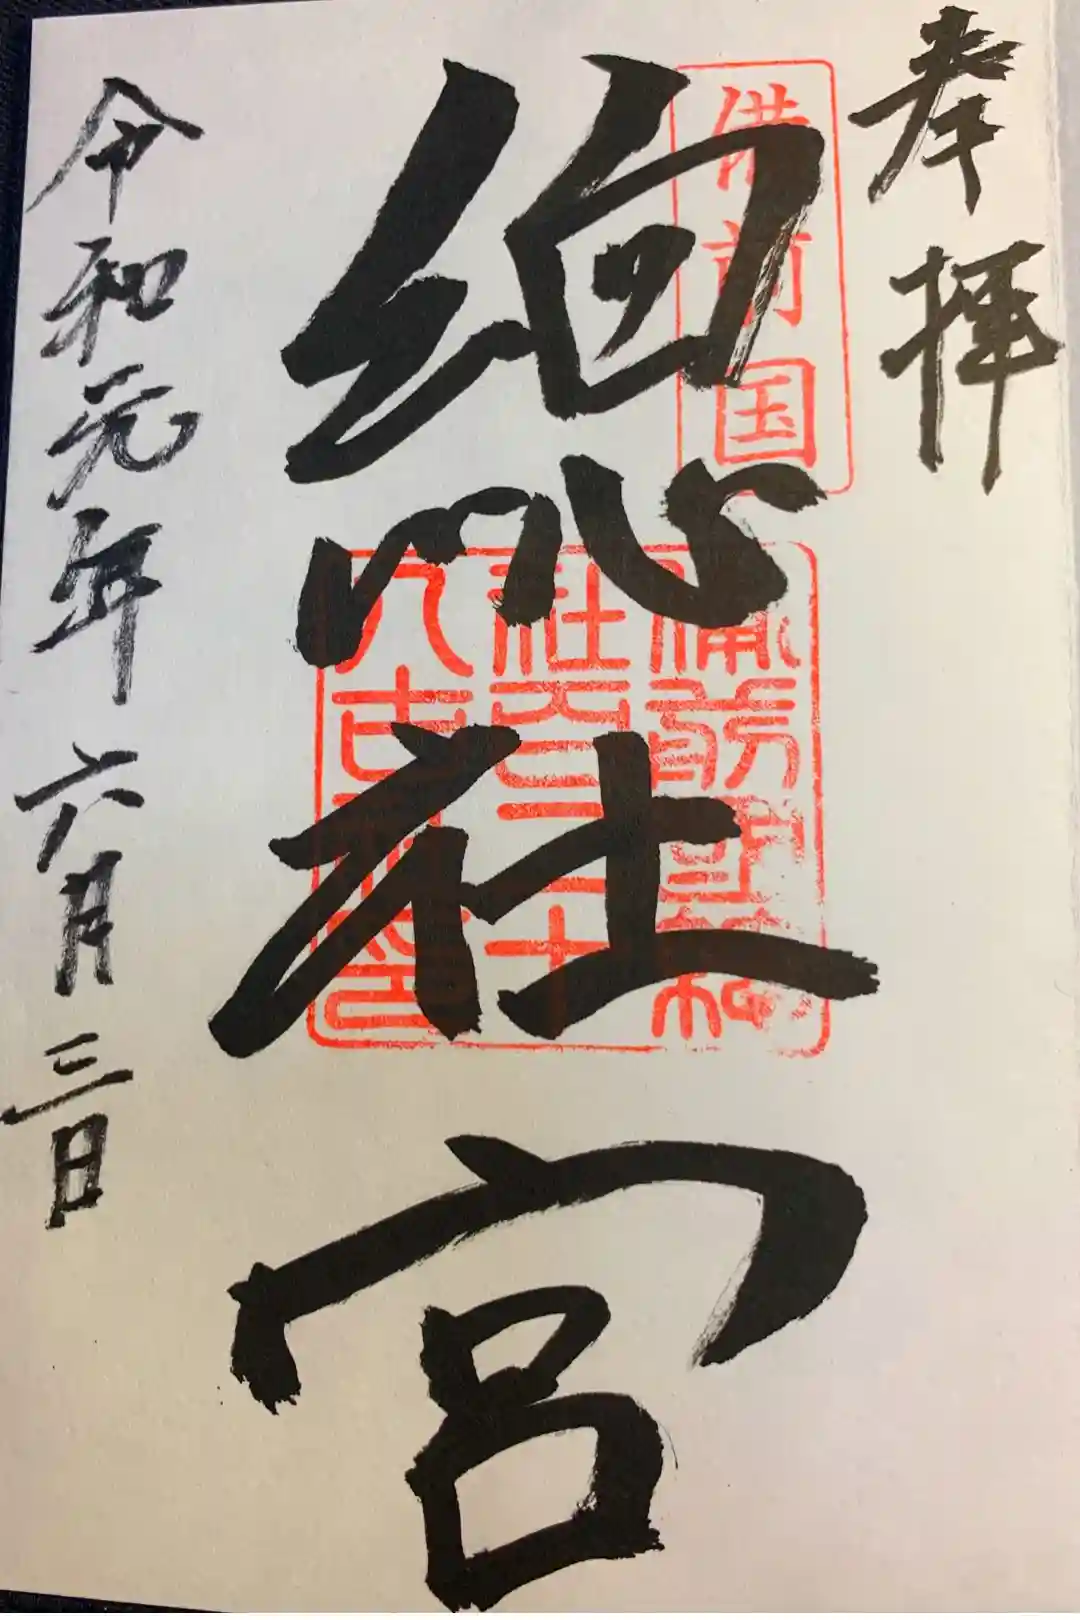 奉拝
備前国
總社宮
備前國
社百二十
八古
令和元年六月三日